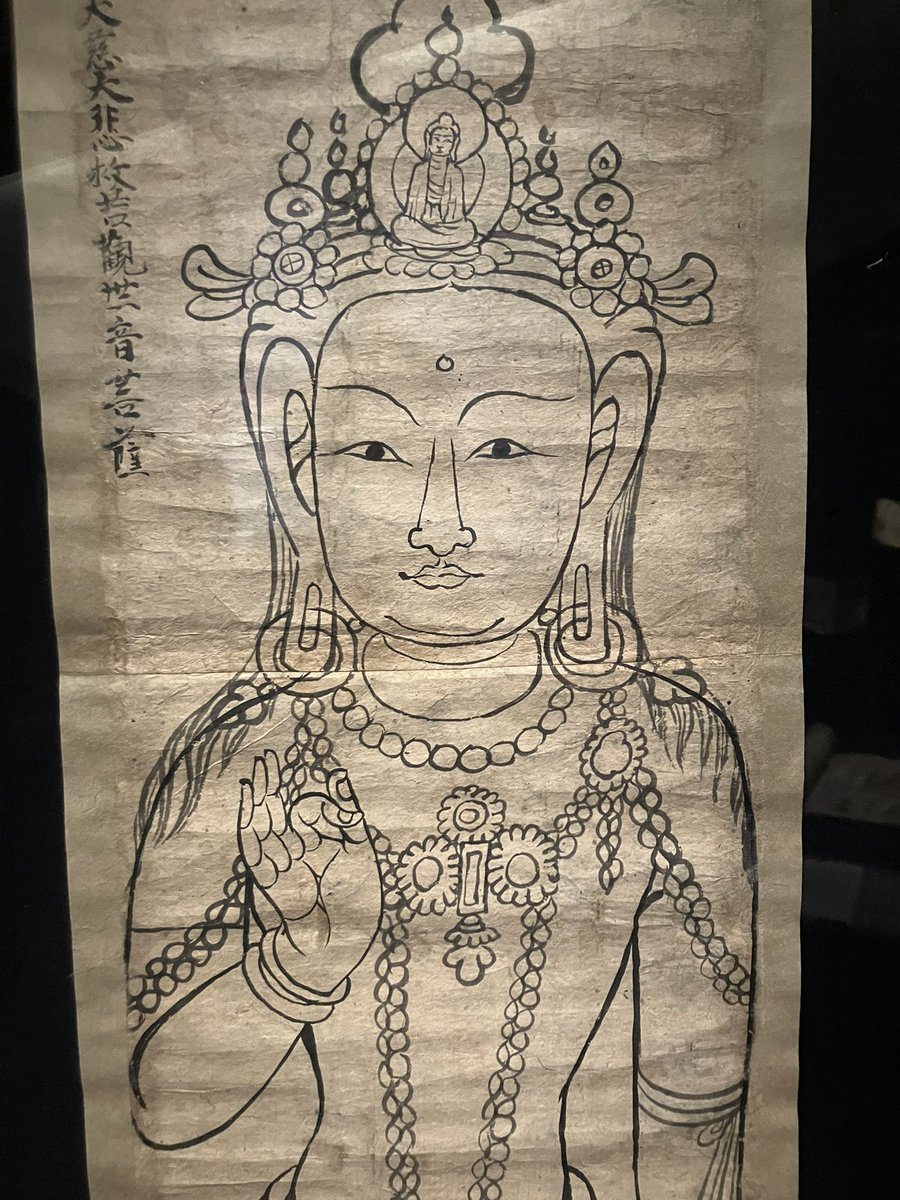 大慈大悲救苦觀世音菩薩